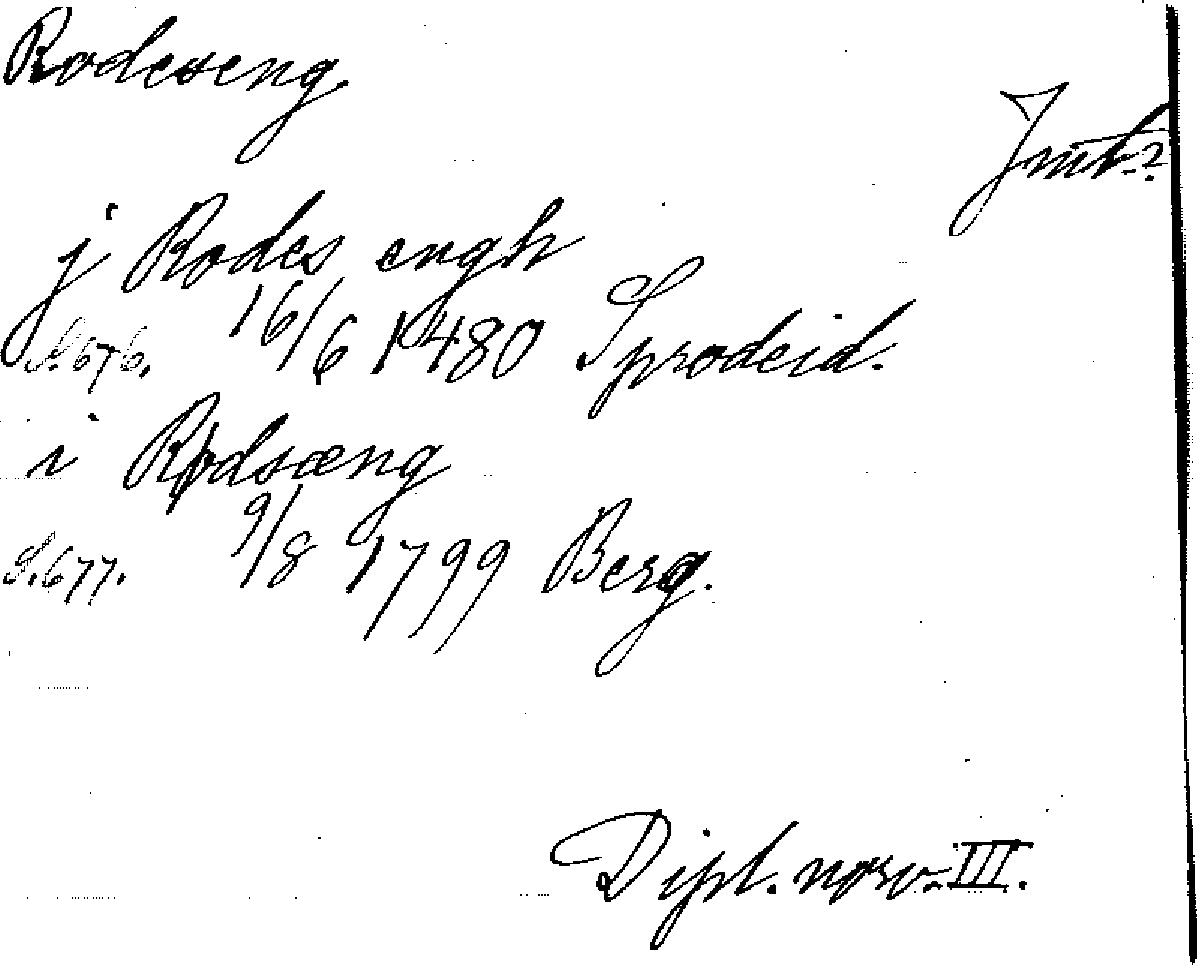 Rodeseng.
Jmt.?
j Rodes engh
S. 676. 16/6 1480 Sprodeid.
i Rødsæng
S. 677. 9/8 1799 Berg.
Dipl. norv. III.